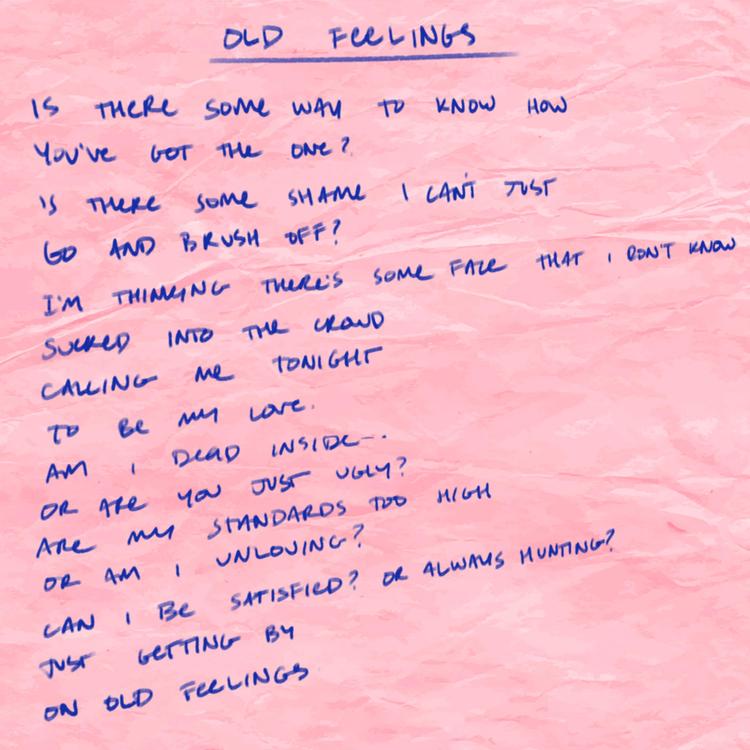 OLD FEELINGS
IS THERE SOME WAY TO KNOW HOW
YOU'VE GOT THE ONE?
IS THERE SOME SHAME I CAN'T JUST
GO AND BRUSH OFF?
I'M THINKING THERE'S SOME FACE THAT I DON'T KNOW
SUCKED INTO THE CROWD
CALLING ME TONIGHT
TO BE MY LOVE.
AM I DEAD INSIDE...
OR ARE YOU JUST UGLY?
ARE MY STANDARDS TOO HIGH
OR AM I UNLOVING?
CAN I BE SATISFIED? OR ALWAYS HUNTING?
JUST GETTING BY
ON OLD FEELINGS